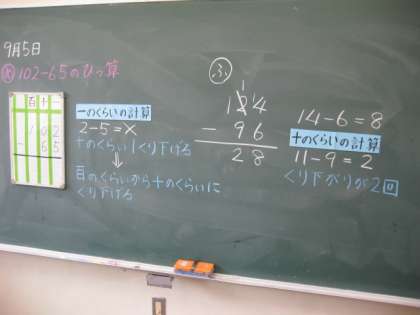 9月5日
め 102-65のひっ算
百 十
102
- 65
一のくらいの計算
2-5=×
十のくらい1くり下げる
↓
百のくらいから十のくらいに
くり下げる
ふ
124
- 96
28
14-6=8
十のくらいの計算
11-9=2
くり下がりが2回